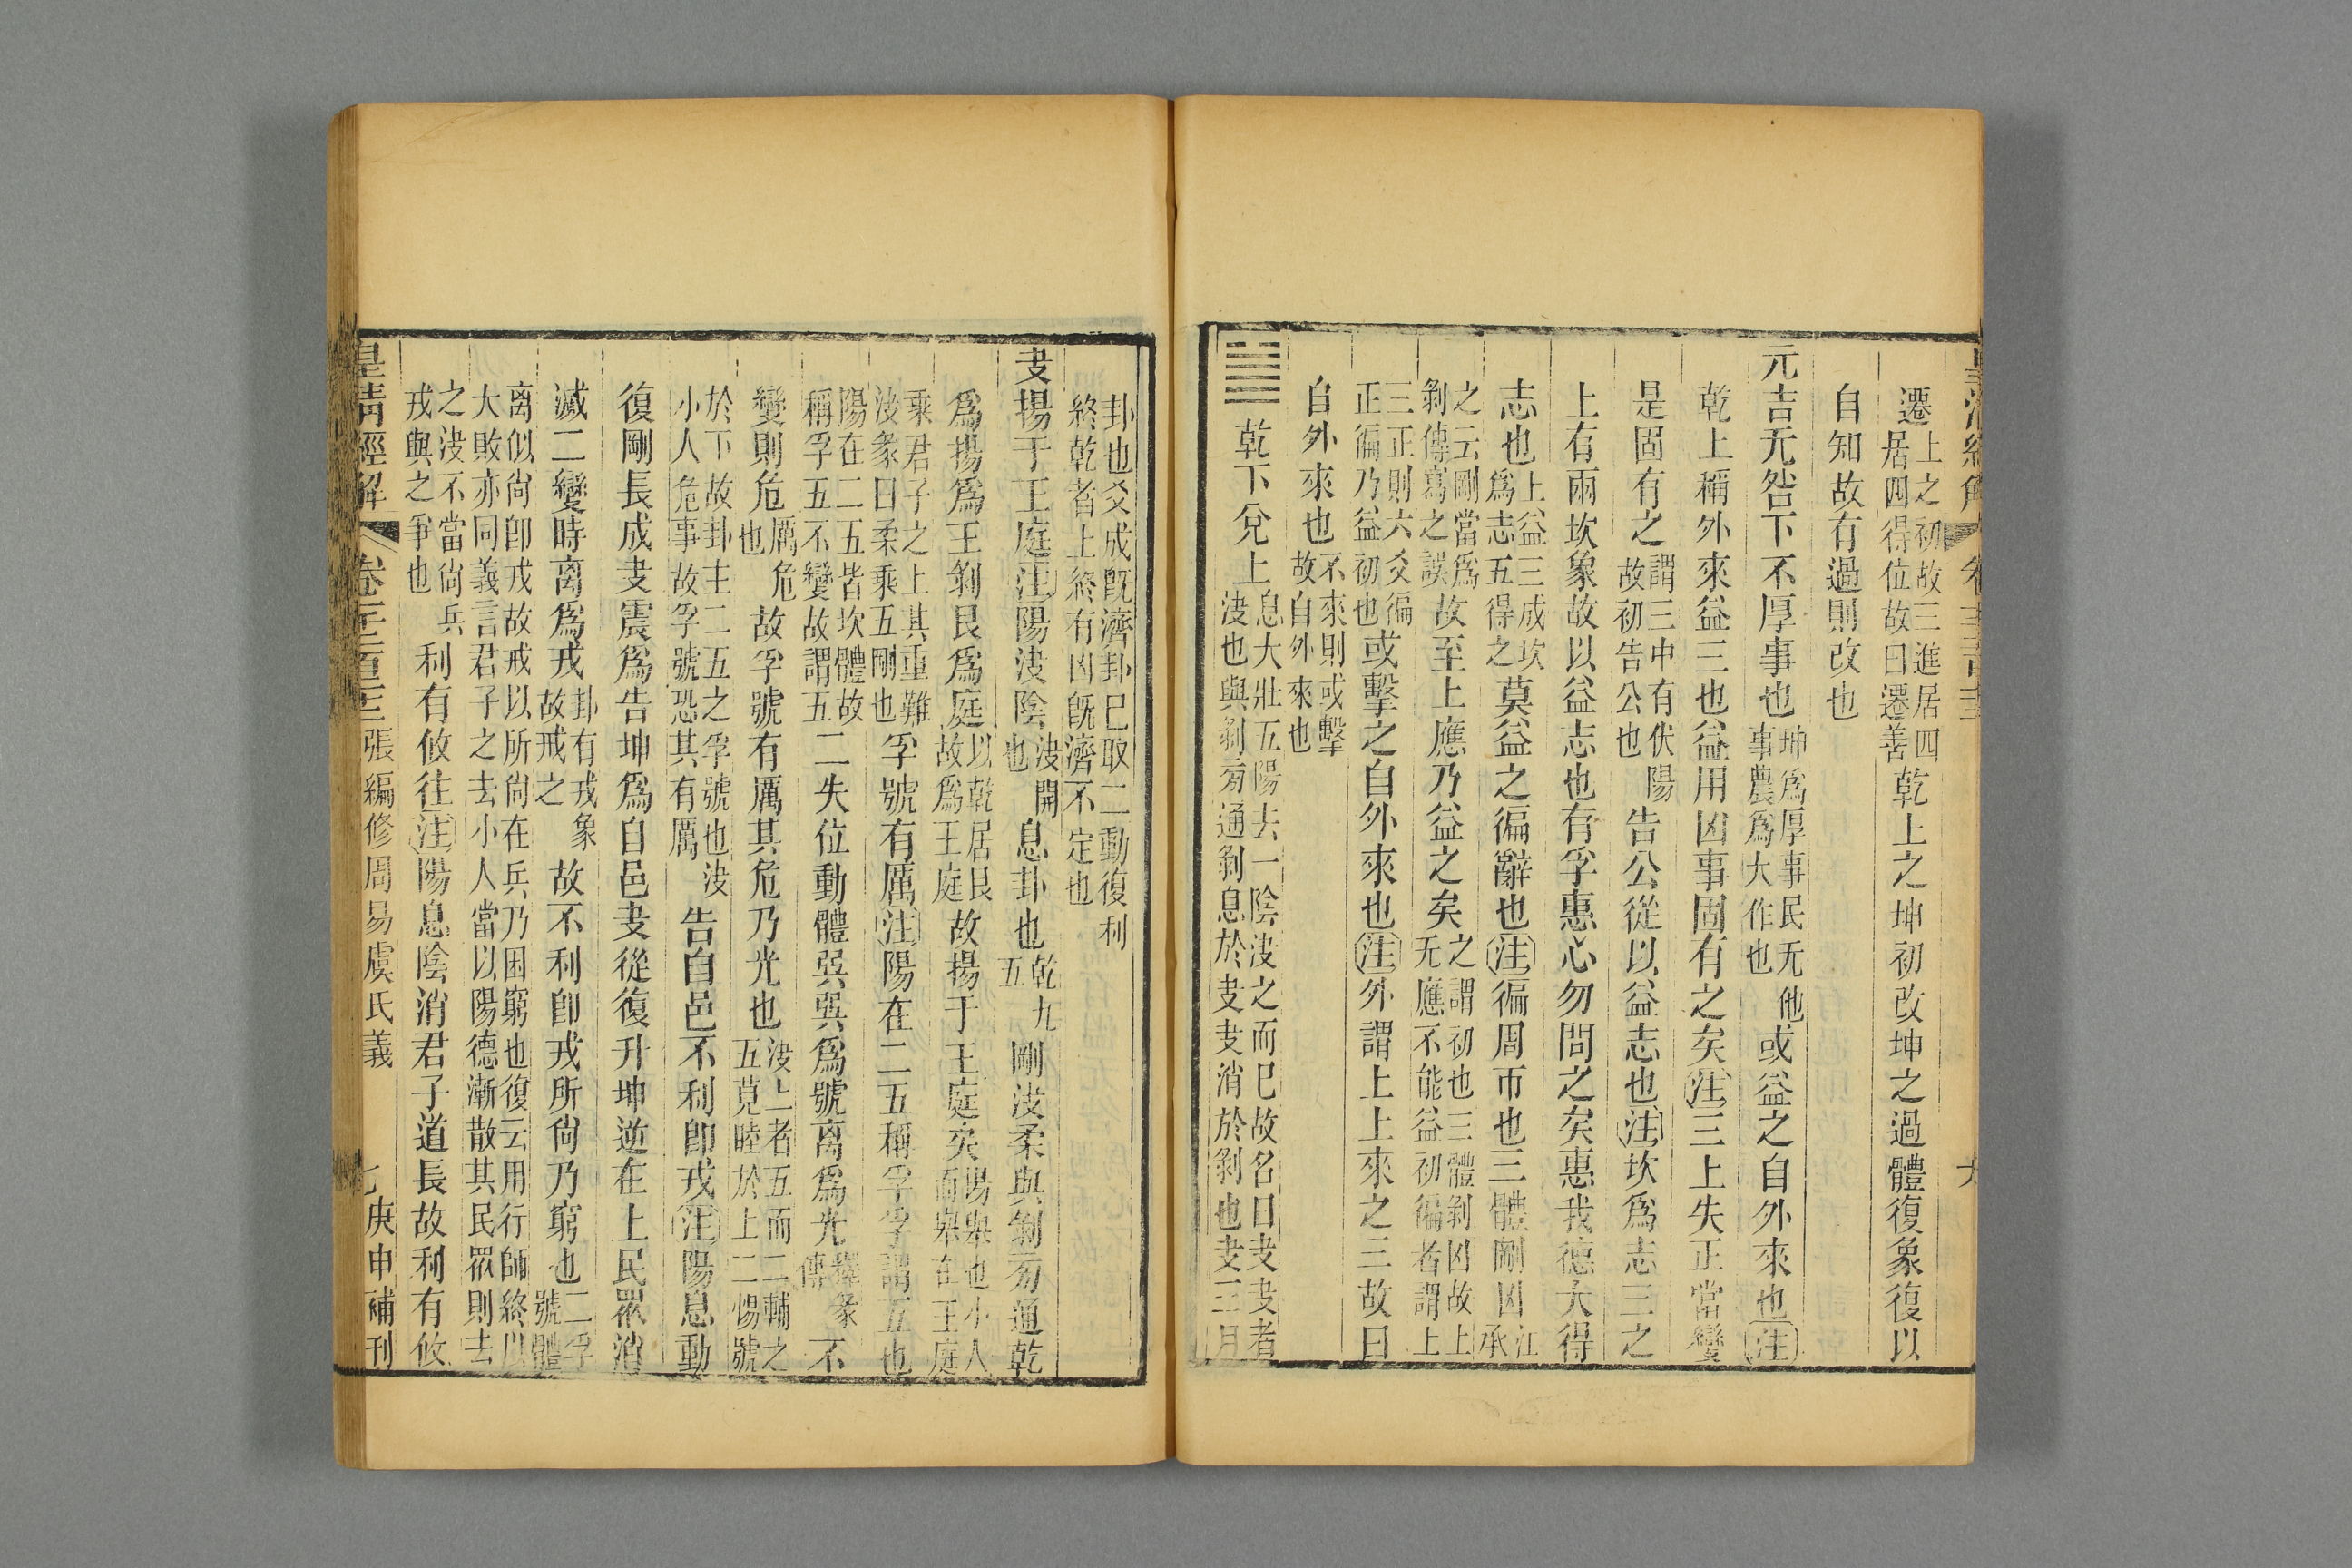 皇清經解 卷 六
遷上之初故三進居四
居四得位故曰遷善乾上之坤初改坤之過體復象復以
自知故有過則改也
元吉无咎下不厚事也坤爲厚事民无他
事農爲大作也或益之自外來也注
乾上稱外來益三也益用凶事固有之矣注三上失正當變
是固有之謂三中有伏陽
故初告公也告公從以益志也注坎爲志三之
上有兩坎象故以益志也有孚惠心勿問之矣惠我德大得
志也上益三成坎
爲志五得之莫益之徧辭也注徧周帀也三體剛凶江
承
之云剛當爲
剝傳寫之誤故至上應乃益之矣之謂初也三體剝凶故上
无應不能益初徧者謂上
三正則六爻徧
正徧乃益初也或擊之自外來也注外謂上上來之三故曰
自外來也不來則或擊
故自外來也
䷪乾下兌上息大壯五陽去一陰決之而已故名曰夬夬者
決也與剝旁通剝息於夬夬消於剝也夬三月
卦也爻成旣濟卦巳取二動復利
終乾者上終有凶旣濟不定也
夬揚于王庭注陽決陰決開
也息卦也乾九
五剛決柔與剝旁通乾
爲揚爲王剝艮爲庭以乾居艮
故爲王庭故揚于王庭矣陽與也小人
而與在王庭
乘君子之上其重難
決彖曰柔乘五剛也孚號有厲注陽在二五稱孚孚謂五也
陽在二五皆坎體故
稱孚五不變故謂五二失位動體巽巽爲號离爲光釋彖
傳不
變則危厲危
也故孚號有厲其危乃光也決上者五而二輔之
五莧睦於上二惕號
於下故卦主二五之孚號也決
小人危事故孚號恐其有厲告自邑不利卽戎注陽息動
復剛長成夬震爲告坤爲自邑夬從復升坤逆在上民眾消
滅二變時离爲戎卦有戎象
故戒之故不利卽戎所尙乃窮也二孚
號體
离似尙卽戎故戒以所尙在兵乃困窮也復云用行師終以
大敗亦同義言君子之去小人當以陽德漸散其民眾則去
之決不當尙兵
戎與之爭也利有攸往注陽息陰消君子道長故利有攸
皇清經解 卷 張編修周易虞氏義 七 庚申補刊